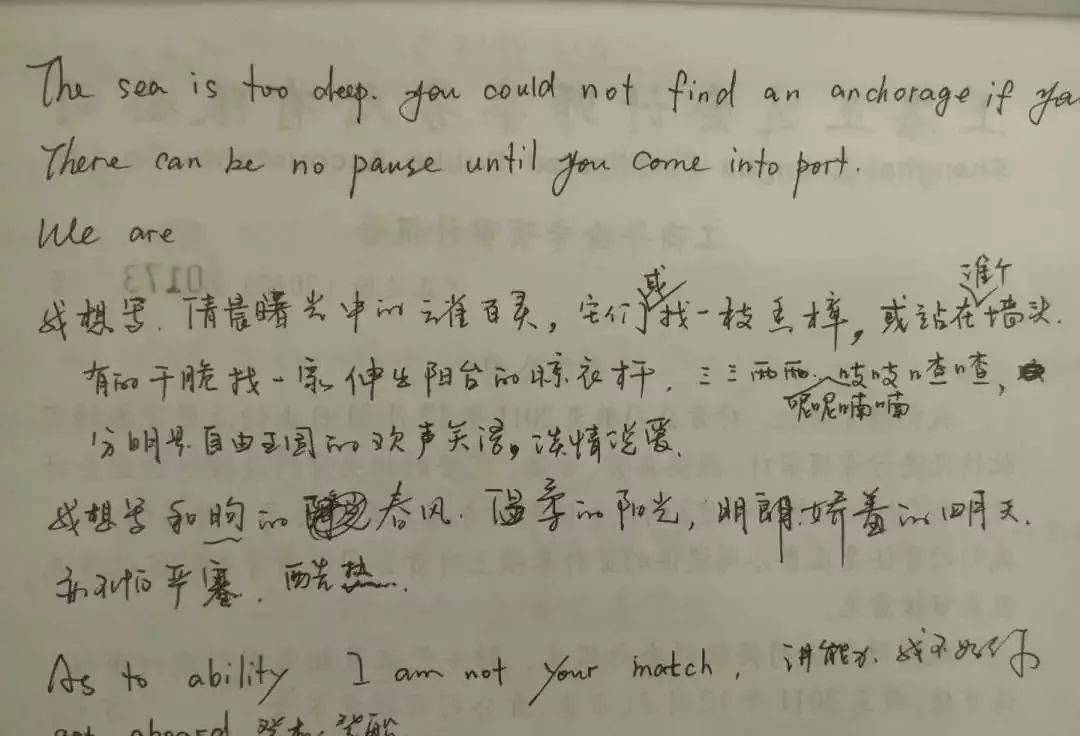 The sea is too deep. you could not find an anchorage if you
There can be no pause until you come into port.
We are
我想写.清晨曙光中的云雀百灵,它们或找一枝香樟,或站在谁个墙头.
有的干脆找一家伸出阳台的晾衣杆.三三两两.吱吱喳喳,呢呢喃喃
分明是自由王国的欢声笑语,谈情说爱.
我想写和煦的春风.温柔的阳光,明朗.娇羞的四月天.
亦不怕严寒.酷热.
As to ability I am not your match, 讲能力.我不如你
get aboard 登机.登船
0173